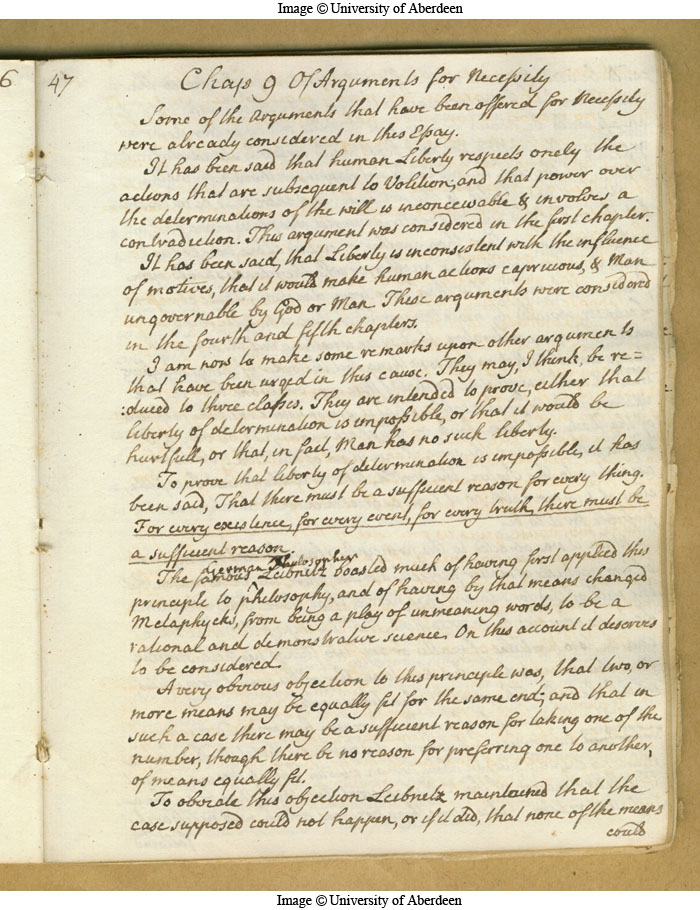 Image © University of Aberdeen
6
47
Chap 9 Of Arguments for Necessity
Some of the Arguments that have been offered for Necessity
were already considered in this Essay.
It has been said that human Liberty respects onely the
actions that are subsequent to Volition; and that power over
the determinations of the will is inconceivable & involves a
contradiction. This argument was considered in the first chapter.
It has been said, that Liberty is inconsistent with the influence
of motives, that it would make human actions capricious, & Man
ungovernable by God or Man These arguments were considered
in the fourth and fifth chapters.
I am now to make some remarks upon other arguments
that have been urged in this cause. They may, I think, be re=
:duced to three classes. They are intended to prove, either that
liberty of determination is impossible, or that it would be
hurtfull, or that, in fact, Man has no such liberty.
To prove that liberty of determination is impossible, it has
been said, That there must be a sufficient reason for every thing.
For every existence, for every event, for every truth, there must be
a sufficient reason.
German Philosopher
The famous Leibnetz boasted much of having first applied this
principle to philosophy, and of having by that means changed
Metaphycks, from being a play of unmeaning words, to be a
rational and demonstrative science. On this account it deserves
to be considered.
A very obvious objection to this principle was, that two, or
more means may be equally fit for the same end; and that in
such a case there may be a sufficient reason for taking one of the
number, though there be no reason for preferring one to another,
of means equally fit.
To obviate this objection Leibnetz maintained that the
case supposed could not happen, or if it did, that none of the means
could
Image © University of Aberdeen